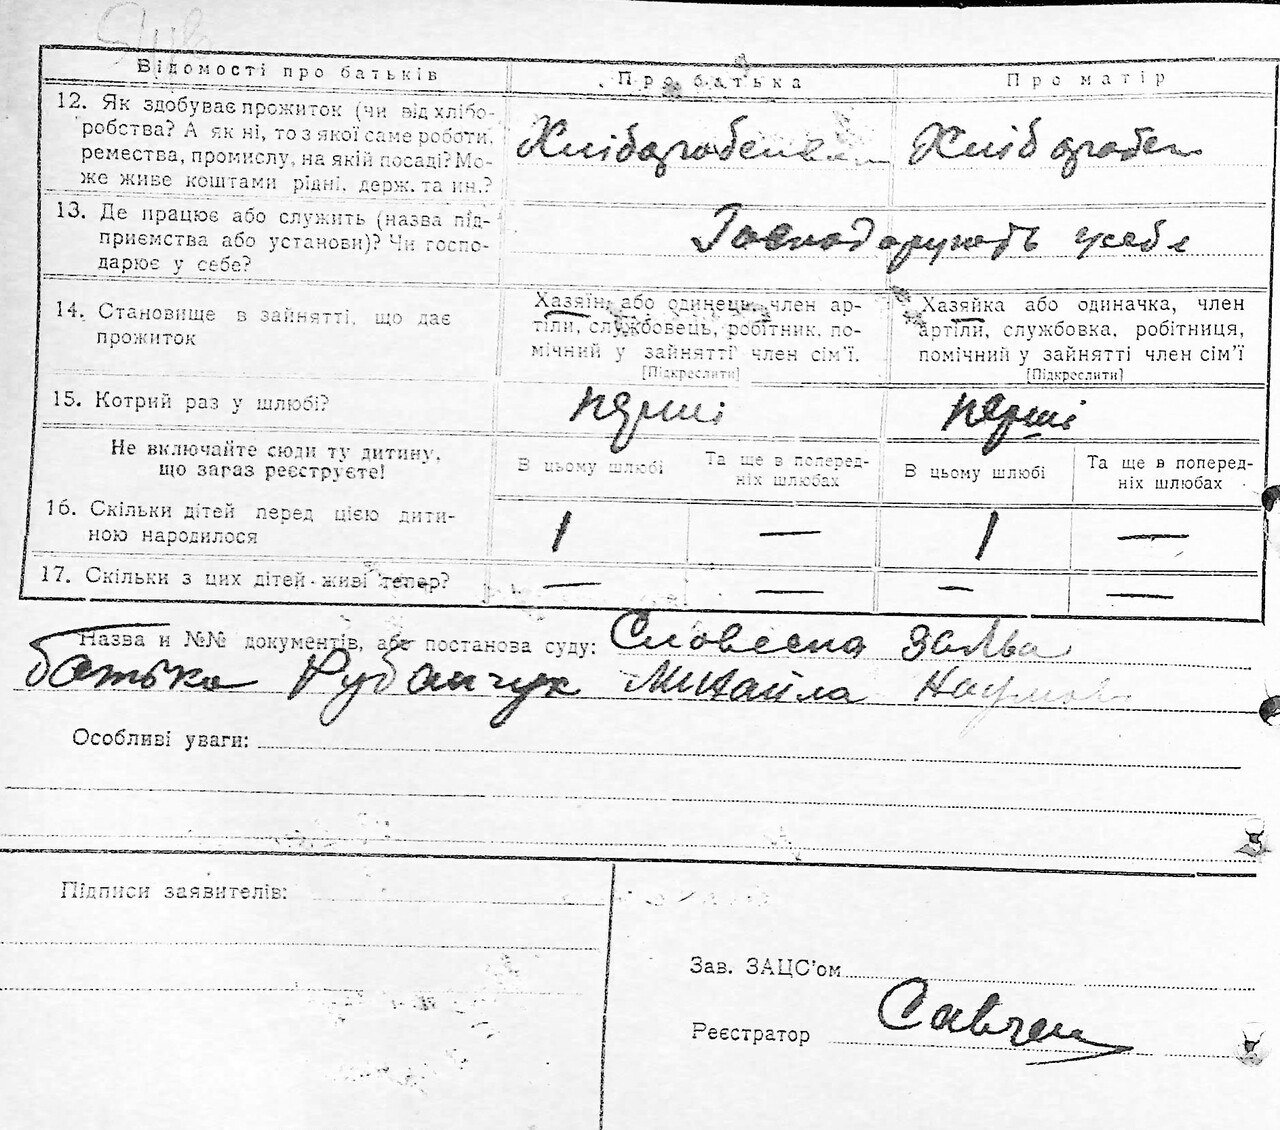 Відомості про батьків Про батька Про матір
12. Як здобуває прожиток (чи від хлібо-
робства? А як ні, то з якої саме роботи,
ремества, промислу, на якій посаді? Мо-
же живе коштами рідні, держ. та ин.?
Хлібороб
13. Де працює або служить (назва під-
приємства або установи)? Чи госпо-
дарює у себе?
Господарують у себе
14. Становище в зайнятті, що дає
прожиток
Хазяїн, або одинець, член ар-
тіли, службовець, робітник, по-
мічний у зайнятті член сім'ї.
[Підкреслити]
Хазяйка або одиначка, член
артіли, службовка, робітниця,
помічний у зайнятті член сім'ї
[Підкреслити]
15. Котрий раз у шлюбі? перші перші
Не включайте сюди ту дитину,
що загаз реєструєте!
В цьому шлюбі
Та ще в поперед-
ніх шлюбах
В цьому шлюбі
Та ще в поперед-
ніх шлюбах
16. Скільки дітей перед цією дити-
ною народилося
1 — 1 —
17. Скільки з цих дітей живі тепер? — — — —
Назва и №№ документів, або постанова суду: Словесна заява
батька Рубанчук Михайла
Особливі уваги:
Підписи заявителів:
Зав. ЗАЦС'ом
Реєстратор